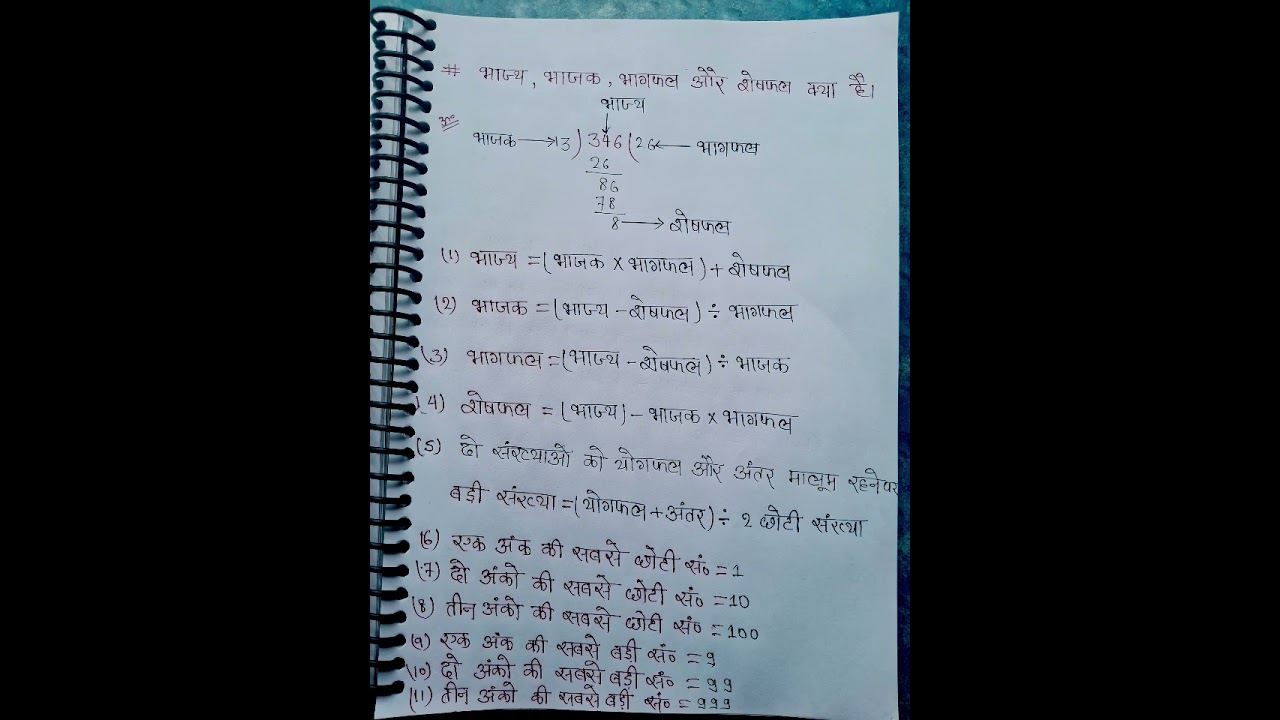 # भाज्य, भाजक, भागफल और शेषफल क्या है।
भाज्य
उ०
भाजक → 13) 346 (26 ← भागफल
26
86
78
8 → शेषफल
(1) भाज्य = (भाजक × भागफल) + शेषफल
(2) भाजक = (भाज्य - शेषफल) ÷ भागफल
(3) भागफल = (भाज्य - शेषफल) ÷ भाजक
(4) शेषफल = (भाज्य) - भाजक × भागफल
(5) दो संख्याओं को योगफल और अंतर मालूम रहनेपर
बड़ी संख्या = (योगफल + अंतर) ÷ 2 छोटी संख्या
(6) एक अंक की सबसे छोटी सं० = 1
(7) दो अंको की सबसे छोटी सं० = 10
(8) तीन अंको की सबसे छोटी सं० = 100
(9) एक अंक की सबसे बड़ी सं० = 9
(10) दो अंको की सबसे बड़ी सं० = 99
(11) तीन अंको की सबसे बड़ी सं० = 999